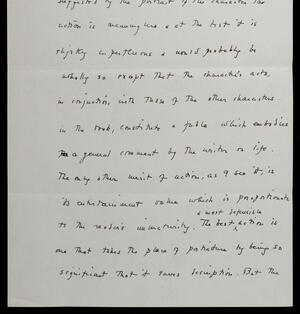 suggested by the portrait of the character the
action is meaningless & at the best it is
slightly impertinent & would probably be
wholly so except that the character's acts,
in conjunction with those of the other characters
in the book, constitute a fable which embodies
a general comment by the writer on life.
The only other merit of action, as I see it, is
its entertainment value which is proportionate
& most defensible
to the reader's immaturity. The best action is
one that takes the place of portraiture by being so
significant that it saves description. But the